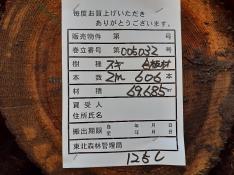 毎度お買上げいただき
ありがとうございます。
販売物件 第 号
巻立番号 第005032号
樹種 スギ
本数 2m 606本
材積 69.685m³
買受人
住所氏名
搬出期限 自 年 月 日
至 年 月 日
東北森林管理局